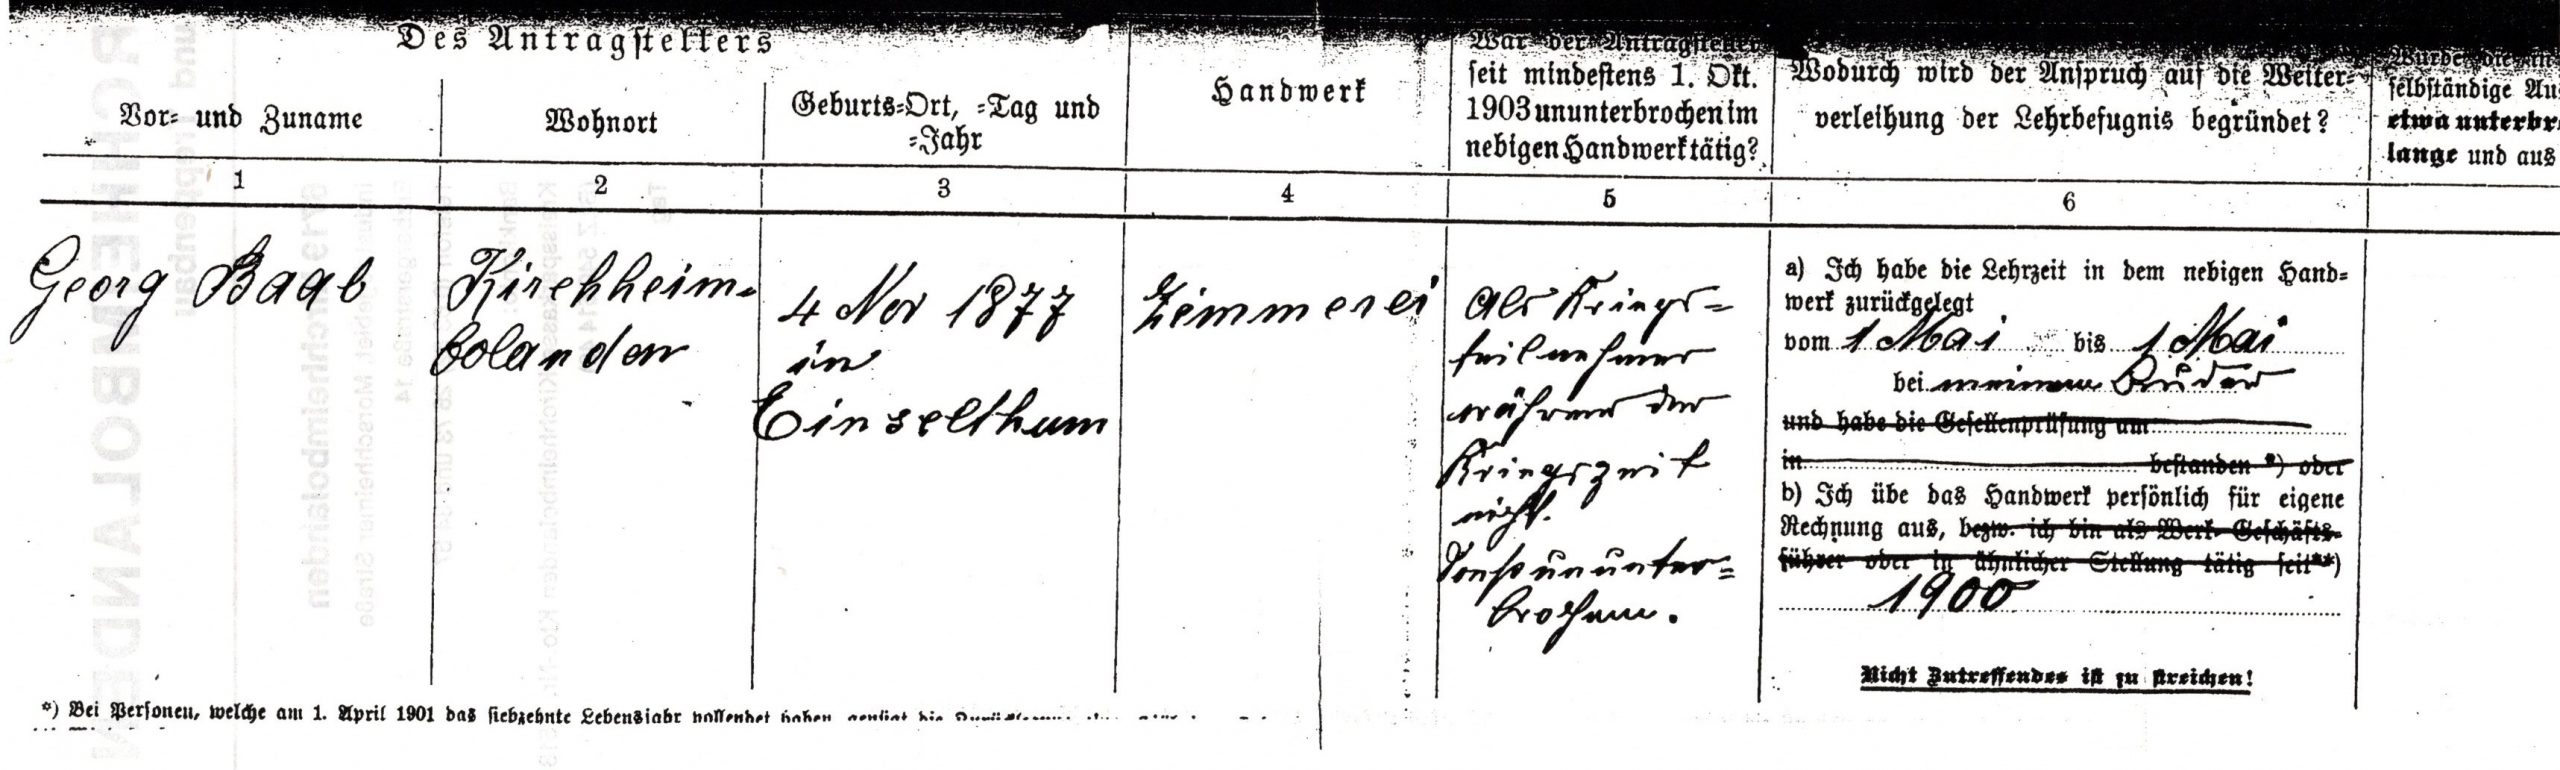 Des Antragstellers
Vor- und Zuname
Wohnort
Geburts-Ort, -Tag und
-Jahr
Handwerk
War der Antragsteller
seit mindestens 1. Okt.
1903 ununterbrochen im
nebigen Handwerk tätig?
Wodurch wird der Anspruch auf die Weiter-
verleihung der Lehrbefugnis begründet?
Wurde die in
selbständige Au
etwa unterbr
lange und aus
1
2
3
4
5
6
Georg Baab
Kirchheim-
bolanden
4 Nov 1877
in
Einselthum
Zimmerei
Als Kriegs-
teilnehmer
während der
Kriegszeit
nicht.
Sonst ununter-
brochen.
a) Ich habe die Lehrzeit in dem nebigen Hand-
werk zurückgelegt
vom 1 Mai bis 1 Mai
bei meinem Bruder
und habe die Gesellenprüfung am
in bestanden *) oder
b) Ich übe das Handwerk persönlich für eigene
Rechnung aus, bezw. ich bin als Werk- Geschäfts-
führer oder in ähnlicher Stellung tätig seit**)
1900
Nicht Zutreffendes ist zu streichen!
*) Bei Personen, welche am 1. April 1901 das siebzehnte Lebensjahr vollendet haben, genügt die